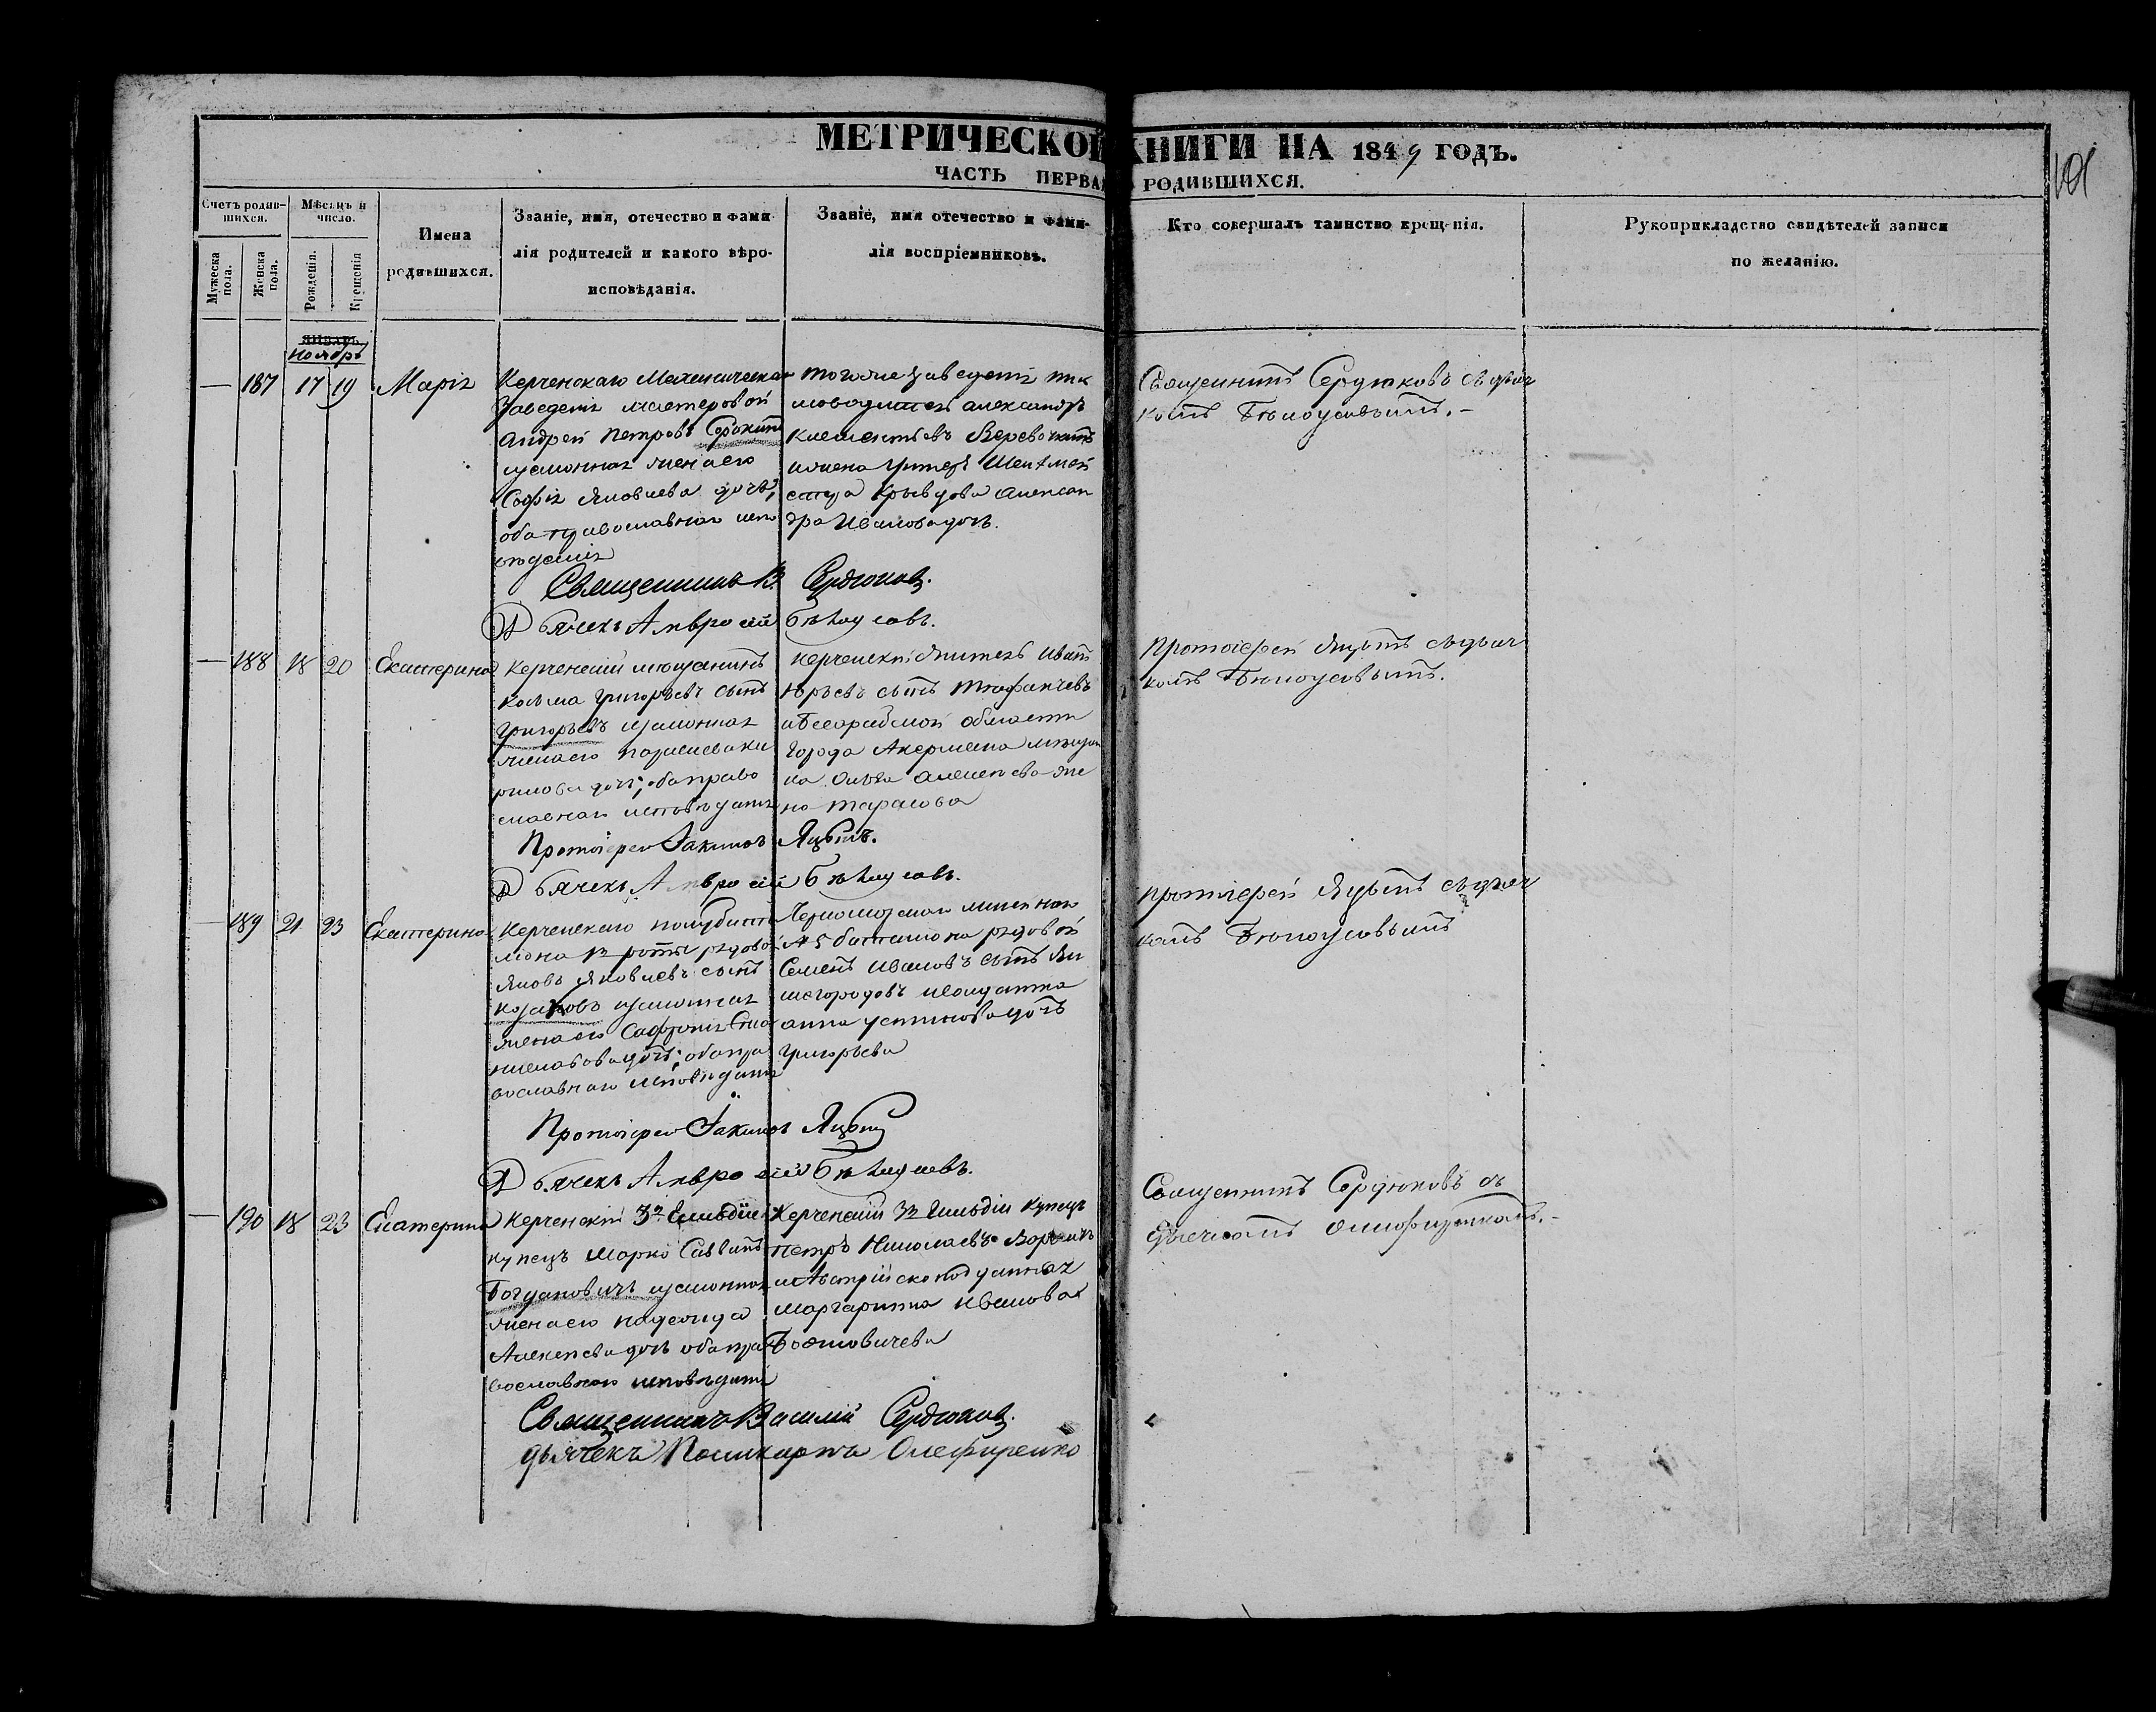 МЕТРИЧЕСКОЙ КНИГИ НА 1849 ГОДЪ.
ЧАСТЬ ПЕРВАЯ РОДИВШИХСЯ.
101
Счетъ родив-
шихся.
Мужеска
пола.
Женска
пола.
Мѣсяцъ и
число.
Рожденія.
Крещенія
Имена
родившихся.
Званіе, имя, отечество и фами
лія родителей и какого вѣро-
исповѣданія.
Званіе, имя отечество и фами-
лія воспріемниковъ.
Кто совершалъ таинство крещенія.
Рукоприкладство свидѣтелей записи
по желанію.
январь
ноябрь
— 187 17 19 Марія
Керченскаго Механическаго
Заведенія мастеровой
Андрей Петровъ Сорокинъ
изаконная жена его
Софія Яковлева дочь,
оба православнаго испо
вѣданія
тогоже заведенія
Александръ
Клементьевъ Веревочкинъ
ижена
Кривцова Алексан
дра Иванова дочь.
Священникъ Сердюковъ съ дьяч
комъ Бѣлоусовымъ.-
Священникъ В. Сердюковъ.
Дьячекъ Амвросій Бѣлоусовъ.
— 188 18 20 Екатерина
Керченскій мѣщанинъ
Косьма Григорьевъ сынъ
Григорьевъ изаконная
жена его
римова дочь; оба право
славнаго исповѣданія
Керченскій житель Иванъ
Юрьевъ сынъ
иБесарабской области
города Акермана мѣщан
ка Ольга Алексѣева
на Тарасова
Протоіерей Яцынъ съ дьяч
комъ Бѣлоусовымъ.
Протоіерей Іакимъ Яцынъ.
Дьячекъ Амвросій Бѣлоусовъ.
— 189 21 23 Екатерина
Керченскаго полубатал
іона роты рядовой
Яковъ Яковлевъ сынъ
Козаковъ изаконная
жена его
дочь; оба пра
вославнаго исповѣданія
Черноморскаго линейнаго
№ 5 баталіона рядовой
Семенъ Ивановъ сынъ Ни
жегородовъ исолдатка
Анна Устинова дочь
Григорьева
Протоіерей Яцынъ съ дьяч
комъ Бѣлоусовымъ
Протоіерей Іакимъ Яцынъ
Дьячекъ Амвросій Бѣлоусовъ.
— 190 18 23 Екатерина
Керченскій 3й Гильдіи
купецъ Марко Саввинъ
Богдановичъ изаконная
жена его Надежда
Алексѣева дочь оба пра
вославнаго исповѣданія
Керченскій 3й Гильдіи купецъ
Петръ Николаевъ
иАвстрійско подданная
Маргарита Иванова
Священникъ Сердюковъ съ
дьячкомъ Олефиренкомъ.-
Священникъ Василій Сердюковъ.
дьячекъ Поликарпъ Олефиренко